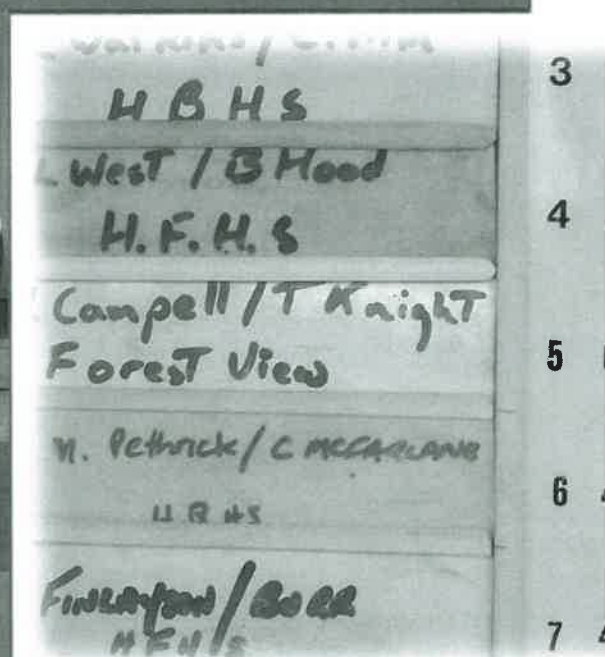 H B H S
3
L West / B Hood
H. F. H. S
4
Campell / T Knight
Forest View
5
N. Pethrick / C McFARLANE
H B HS
6
FINLAYSON / BURR
H F H S
7